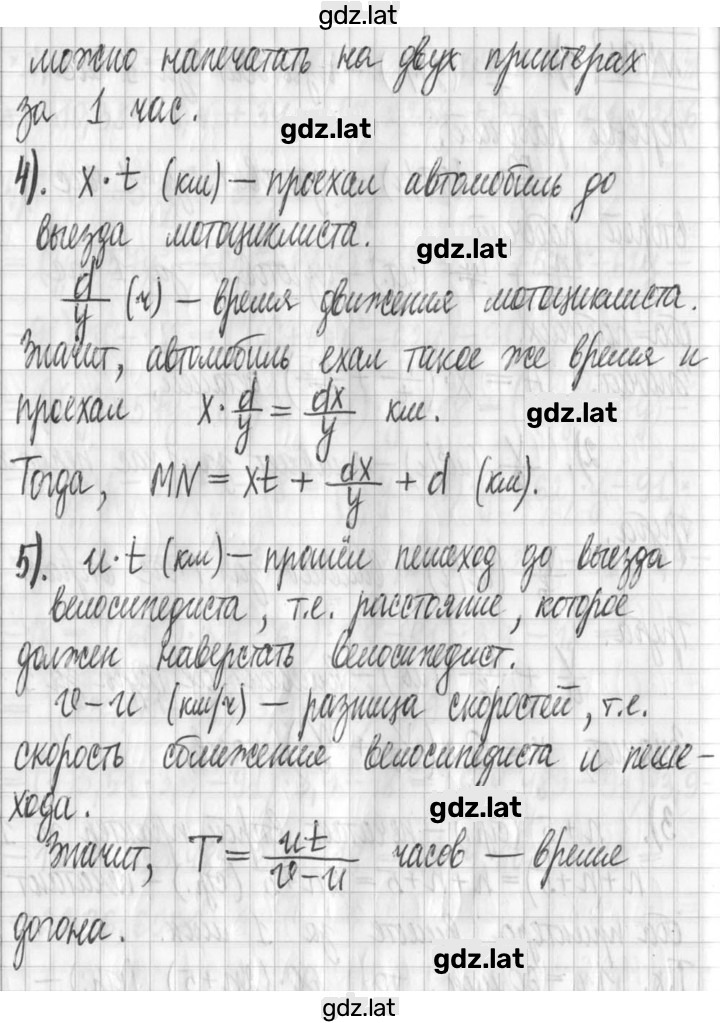 gdz.lat
можно напечатать на двух принтерах
за 1 час.
gdz.lat
4). x·t (км) — проехал автомобиль до
выезда мотоциклиста.
gdz.lat
d/y (ч) — время движения мотоциклиста.
Значит, автомобиль ехал такое же время и
проехал x · d/y = dx/y км.
gdz.lat
Тогда, MN = xt + dx/y + d (км).
5). u·t (км) — прошёл пешеход до выезда
велосипедиста, т.е. расстояние, которое
должен наверстать велосипедист.
v–u (км/ч) — разница скоростей, т.е.
скорость сближения велосипедиста и пеше-
хода.
gdz.lat
Значит, T = ut/(v–u) часов — время
догона.
gdz.lat
gdz.lat